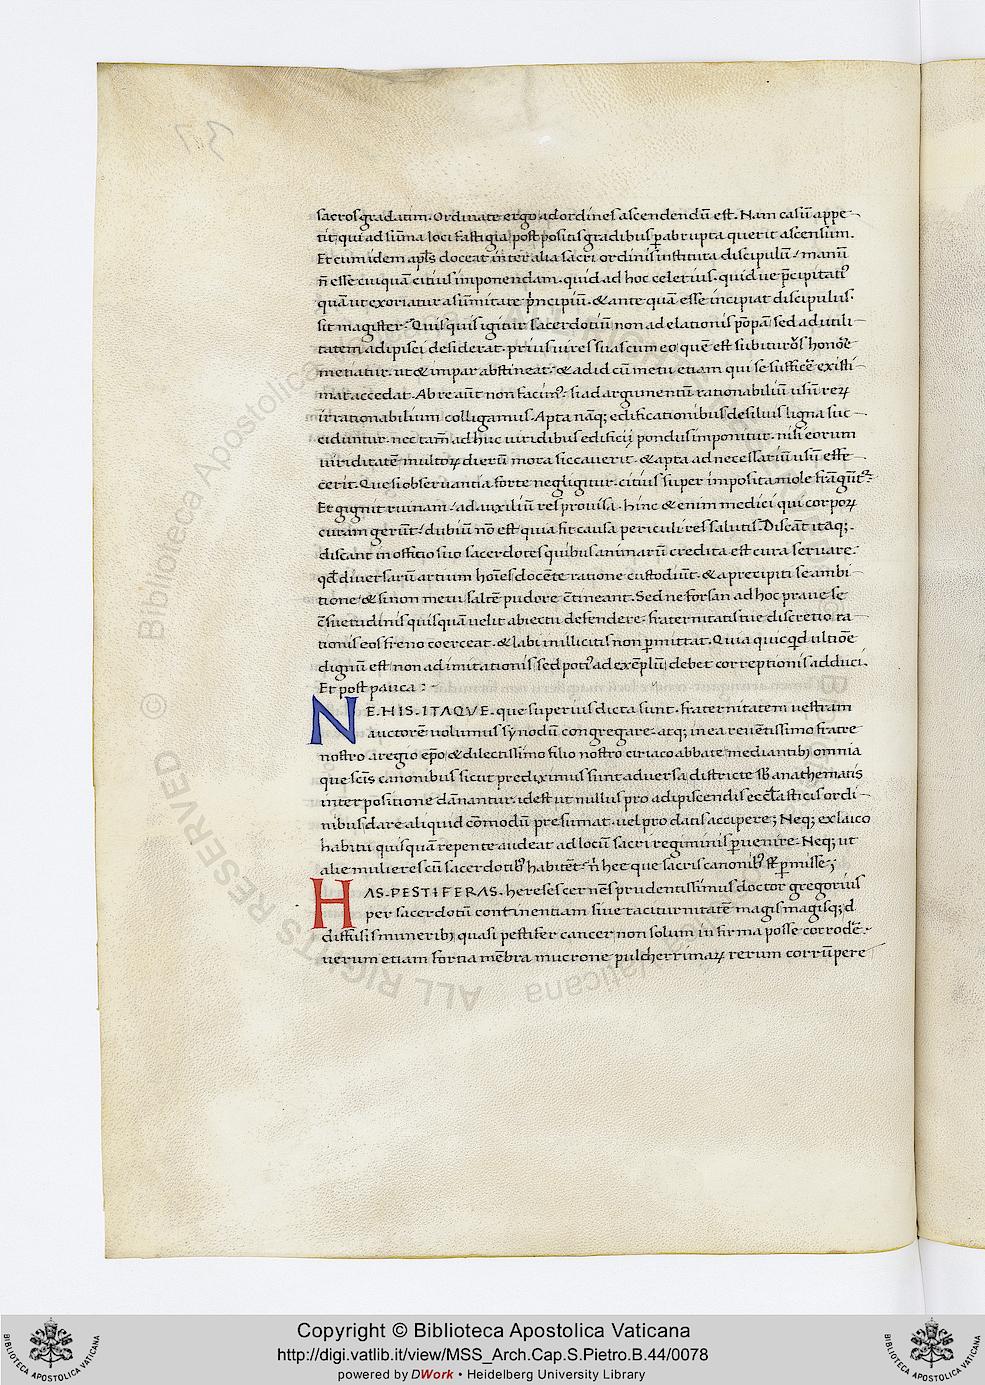 sacros gradatim. Ordinate ergo ad ordines ascendendū est. Nam casū appe-
tit, qui ad sūma loci fastigia postpositis gradibus ꝑ abrupta querit ascensum.
Et cum idem apl̄s doceat inter alia sacri ordinis instituta discipulū / manū
n̄ esse cuiquā citius imponendam. quid ad hoc celetius. quid ue p̄cipitatiꝰ
quā ut exoriatur a sūmitate pⁱncipiū. & ante quā esse incipiat discipulus.
sit magister. Quisquis igitur sacerdotiū non ad elationis pōpā sed ad utili-
tatem adipisci desiderat. prius uires suas cum eo quē est subiturꝰ honōe
metiatur. ut & impar abstineat. & ad id cū metu etiam qui se sufficē existi-
mat accedat. Ab re aūt non facimꝰ. si ad argumentū rationabiliū usū reꝝ
irrationabilium colligamus. Apta nāq; edificationibus de siluis ligna suc-
ciduntur. nec tam̄ adhuc uiridibus edificij pondus imponitur. nisi eorum
uiriditatē multoꝝ dierū mora siccauerit. & apta ad necessariū usū effe
cerit. Que si obseruantia forte negligitur. citius super imposita mole frāgūt̄.
Et gignit ruinam / ad auxiliū res prouisa. hinc & enim medici qui corpoꝝ
curam gerūt / dubiū nō est quia fit causa periculi res salutis. Discāt itaq;.
discant in officio suo sacerdotes quibus animarū credita est cura seruare.
qd̄ diuersarū artium hoīes docēte ratione custodiūt. & a precipiti se ambi
tione & si non metu saltē pudore c̄tineant. Sed ne forsan ad hoc praue se
c̄suetudinis quisquā uelit abiectu defendere. fraternitatis tue discretio ra
tionis eos freno coerceat. & labi in illicitis non ꝑmittat. Quia quicqd̄ ultiōe
dignū est non ad imitationis sed potiꝰ ad exēplū debet correptionis adduci.
Et post pauca :-
NE. HIS. ITAQVE. que superius dicta sunt. fraternitatem uestram
auctorē uolumus sẏnodū congregare. atq; in ea reuētissimo fratre
nostro aregio ep̄o & dilectissimo filio nostro ciriaco abbate mediantibꝫ omnia
que sc̄is canonibus sicut prediximus sunt aduersa districte sꝫ anathematis
interpositione dānantur. idest ut nullus pro adipiscendis eccl̄asticis ordi-
nibus dare aliquid cōmodū presumat. uel pro datis accipere; Neq; ex laico
habitu quisquā repente audeat ad locū sacri regiminis ꝑuenire. Neq; ut
alie mulieres cū sacerdotibꝫ habitēt. n̄ hee que sacris canonibꝫ st̄ ꝑmisse;
HAS. PESTIFERAS. hereses cernēs prudentissimus doctor gregorius
per sacerdotū continentiam siue taciturnitatē magis magisq; d
diffusis muneribꝫ quasi pestifer cancer non solum infirma posse corrodē.
uerum etiam fortia mēbra mucrone pulcherrimaꝝ rerum corrūpere
ALL RIGHTS RESERVED © Biblioteca Apostolica Vaticana
Copyright © Biblioteca Apostolica Vaticana
http://digi.vatlib.it/view/MSS_Arch.Cap.S.Pietro.B.44/0078
powered by DWork • Heidelberg University Library
BIBLIOTECA APOSTOLICA VATICANA
BIBLIOTECA APOSTOLICA VATICANA